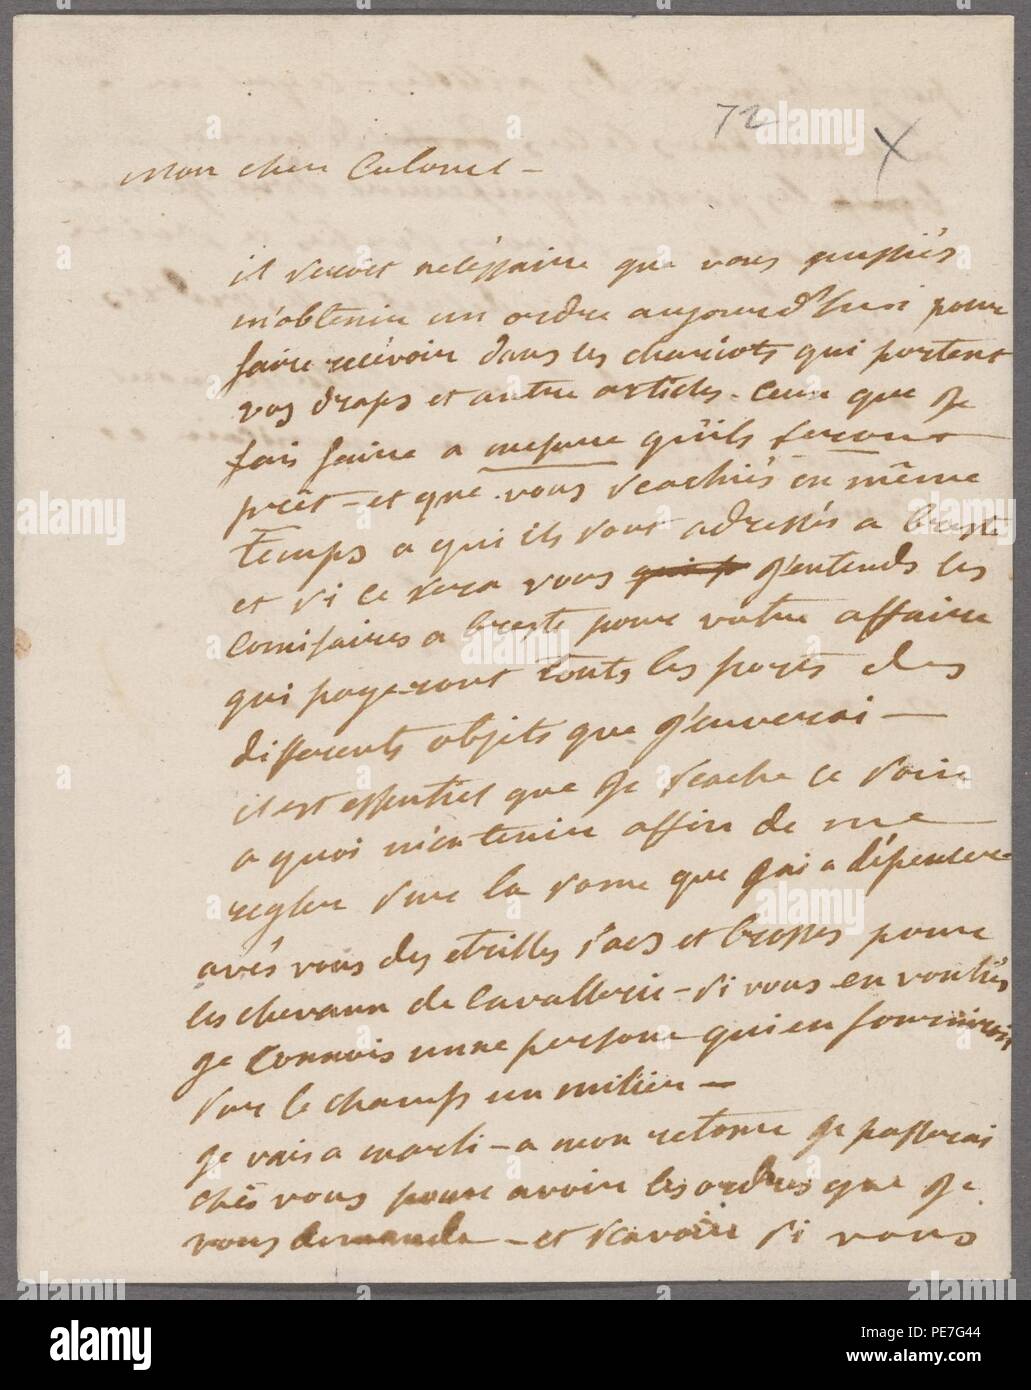 72
X
Mon cher Colonel -
il seroit nécéssaire que vous pussiés
m'obtenir un ordre aujourd'hui pour
faire recévoir dans les chariots qui portent
vos draps et autre articles. ceux que je
fais faire a mesure qu'ils seront
prêt - et que vous scachiés en même
temps a qui ils sont adressés a breste
et si ce sera vous j'entends les
comisaires a breste pour votre affaire
qui payeront touts les ports des
differents objets que j'enverai -
il est essentiel que je scache ce soir
a quoi m'en tenir affin de me
regler sur la some que j'ai a dépenser
avés vous des etrilles sacs et brosses pour
les chevaux de cavallerie - si vous en voulés
je connois unne persone qui en fourniroit
sur le champs un milier -
je vais a marli - a mon retour je passerai
chés vous pour avoir les ordres que je
vous demande - et scavoir si vous
alamy
Image ID: PE7G44
www.alamy.com